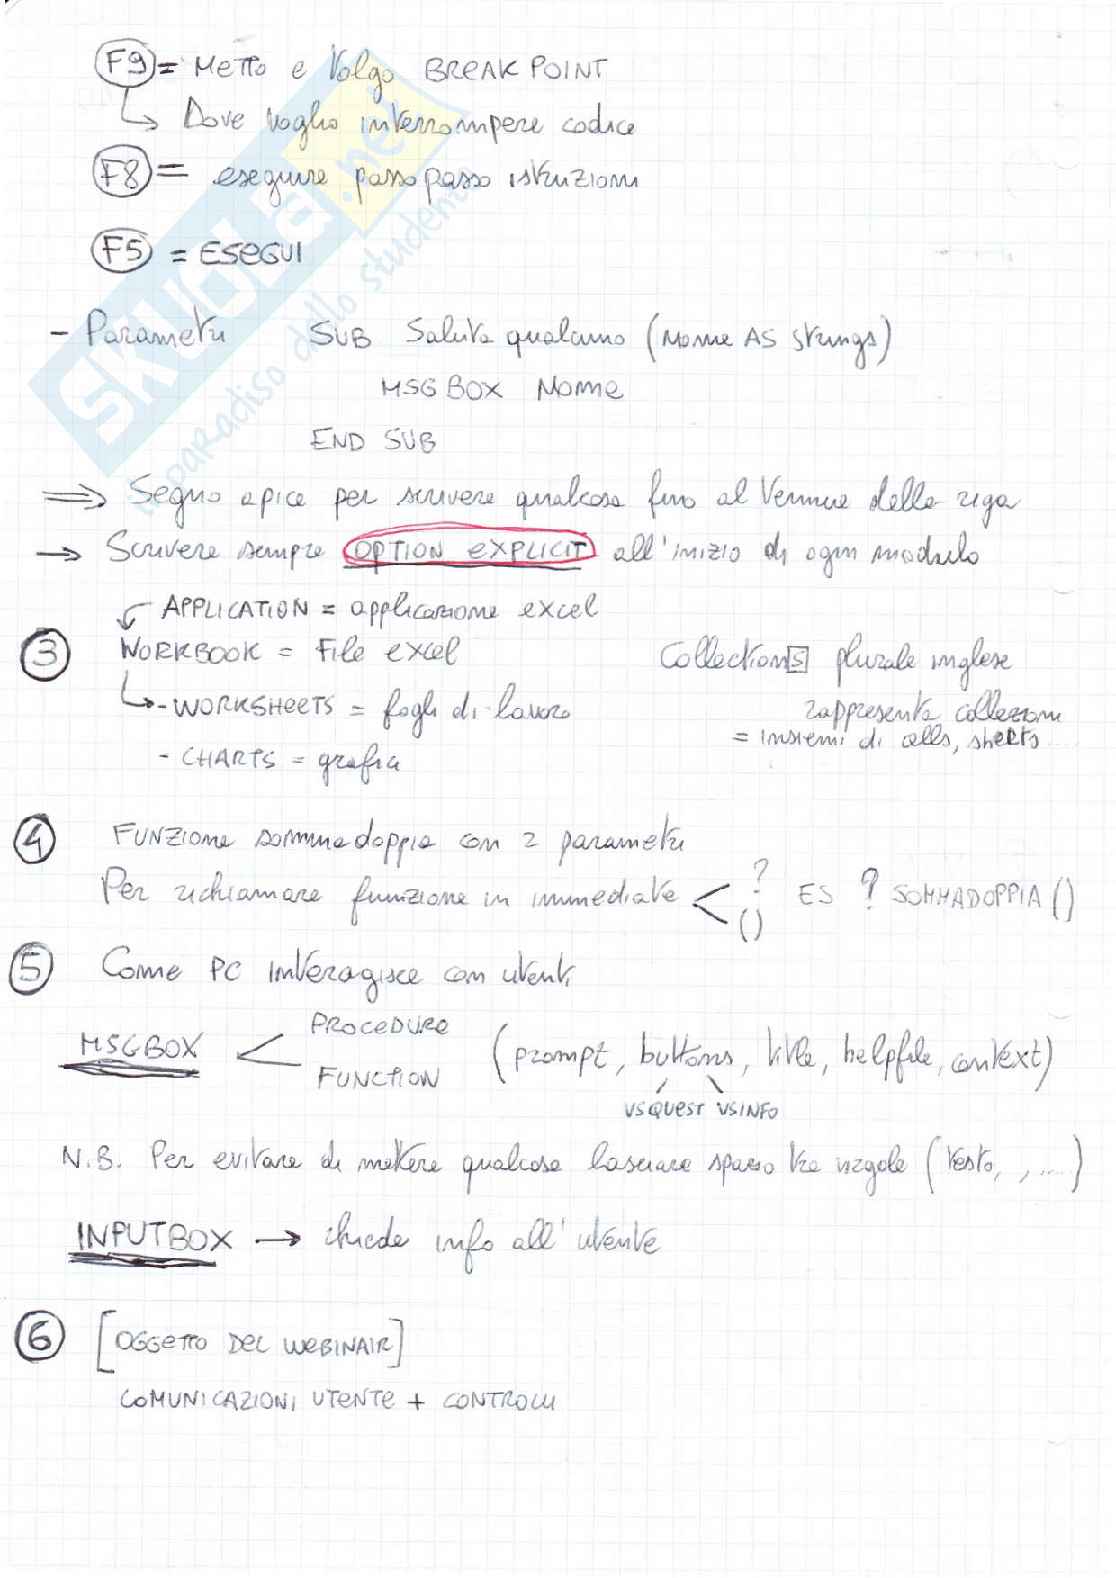 F9 = Metto e tolgo BREAK POINT
↳ Dove voglio interrompere codice
F8 = eseguire passo passo istruzioni
F5 = ESEGUI
- Parametri SUB Saluta qualcuno (Nome AS strings)
MSG BOX Nome
END SUB
⇒ Segno apice per scrivere qualcosa fino al termine della riga
→ Scrivere sempre OPTION EXPLICIT all'inizio di ogni modulo
APPLICATION = applicazione excel
3 WORKBOOK = File excel Collections plurale inglese
↳ - WORKSHEETS = fogli di lavoro rappresenta collezioni
- CHARTS = grafici = insiemi di celle, sheets
4 FUNZIONE sommadoppia con 2 parametri
Per richiamare funzione in immediate < ? () ES ? SOMMADOPPIA ()
5 Come PC interagisce con utenti
MSGBOX < PROCEDURE FUNCTION (prompt, buttons, title, helpfile, context)
VSQUEST VSINFO
N.B. Per evitare di mettere qualcosa lasciare spazio tra virgole (testo, , ....)
INPUTBOX → chiede info all'utente
6 [OGGETTO DEL WEBINAIR]
COMUNICAZIONI UTENTE + CONTROLLI
SKUOLA.net
il paradiso dello studente